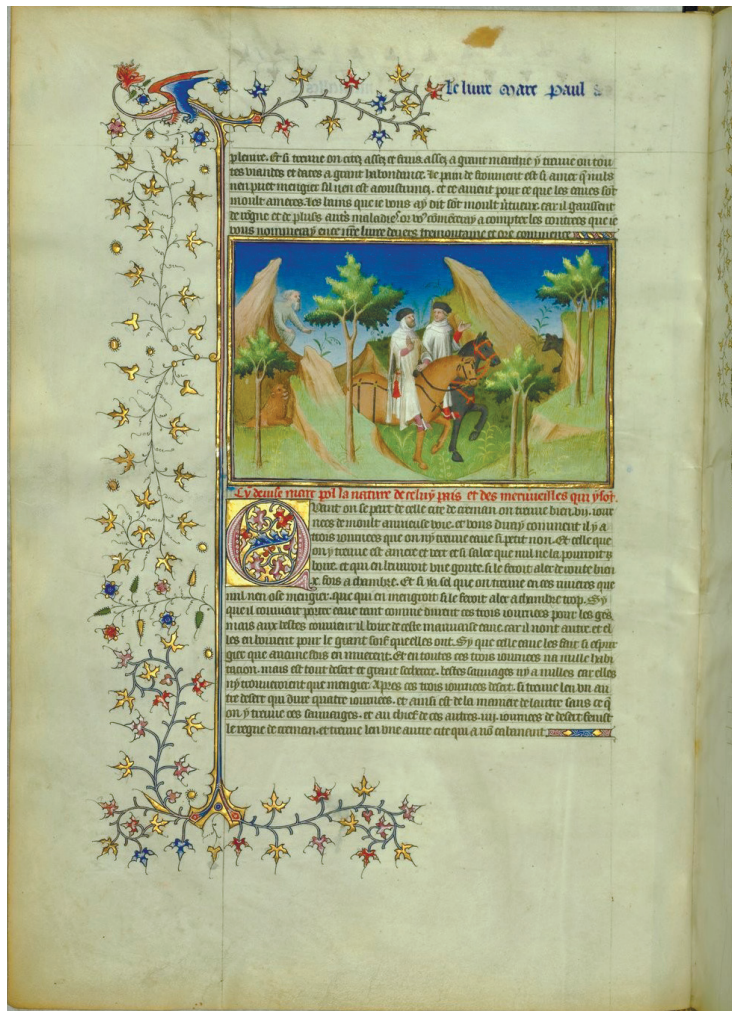 Le liure Marc Paul
pleniere. Et si treuue on citez assez et fruis assez a grant marchie y treuue on tou
tes viandes et dates a grant habondance. Le pain de froument est si amer q̄ nuls
nen puet mengier sil nen est acoustumez. et ce auient pour ce que les eaues sōt
moult ameres. Les bains que ie vous ay dit sōt moult v̄tueux. car il garissent
de roigne et de plusꝰ autꝭs maladieꝰ. or voꝰ cōmenceray a compter les contrees que ie
vous nommeray en ce nr̄e liure deuers tremontaine et ore commence
Cy deuise marc pol la nature de celuy pais et des merueilles qui y sōt.
Quant on se part de celle cite de creman on treuue bien vij. iour
nees de moult anuieuse voie. et vous diray comment il y a
trois iournees que on ny treuue eaue si petit non. Et celle que
on y treuue est amere et vert et si salee que nul ne la pourroit
boire. et qui en beuuroit vne goute. si le feroit aler de route bien
x. fois a chambre. Et si du sel que on treuue en ces riuieres que
nul nen ose mengier. que qui en mengroit si le feroit aler a chambre trop. Sy
que il couuient porter eaue tant comme durent ces trois iournees pour les gēs.
mais aux bestes couuient il boire de ceste mauuaise eaue. car il nont autre. et el
les en boiuent pour le grant soif quelles ont. Sy que celle eaue les fait si espur
gier que aucune fois en muerent. Et en toutes ces trois iournees na nulle habi
tacion. mais est tout desert et grant secheece. bestes sauuages ny a nulles car elles
ny trouueroient que mengier. Apres ces trois iournees desert. si treuue len vn au
tre desert qui dure quatre iournees. et ainsi est de la maniere de lautre sans ce q̄
on y treuue ces sauuaiges. et au chief de ces autres .iiij. iournees de desert fenist
le regne de creman. et treuue len vne autre cite qui a nō cabanant